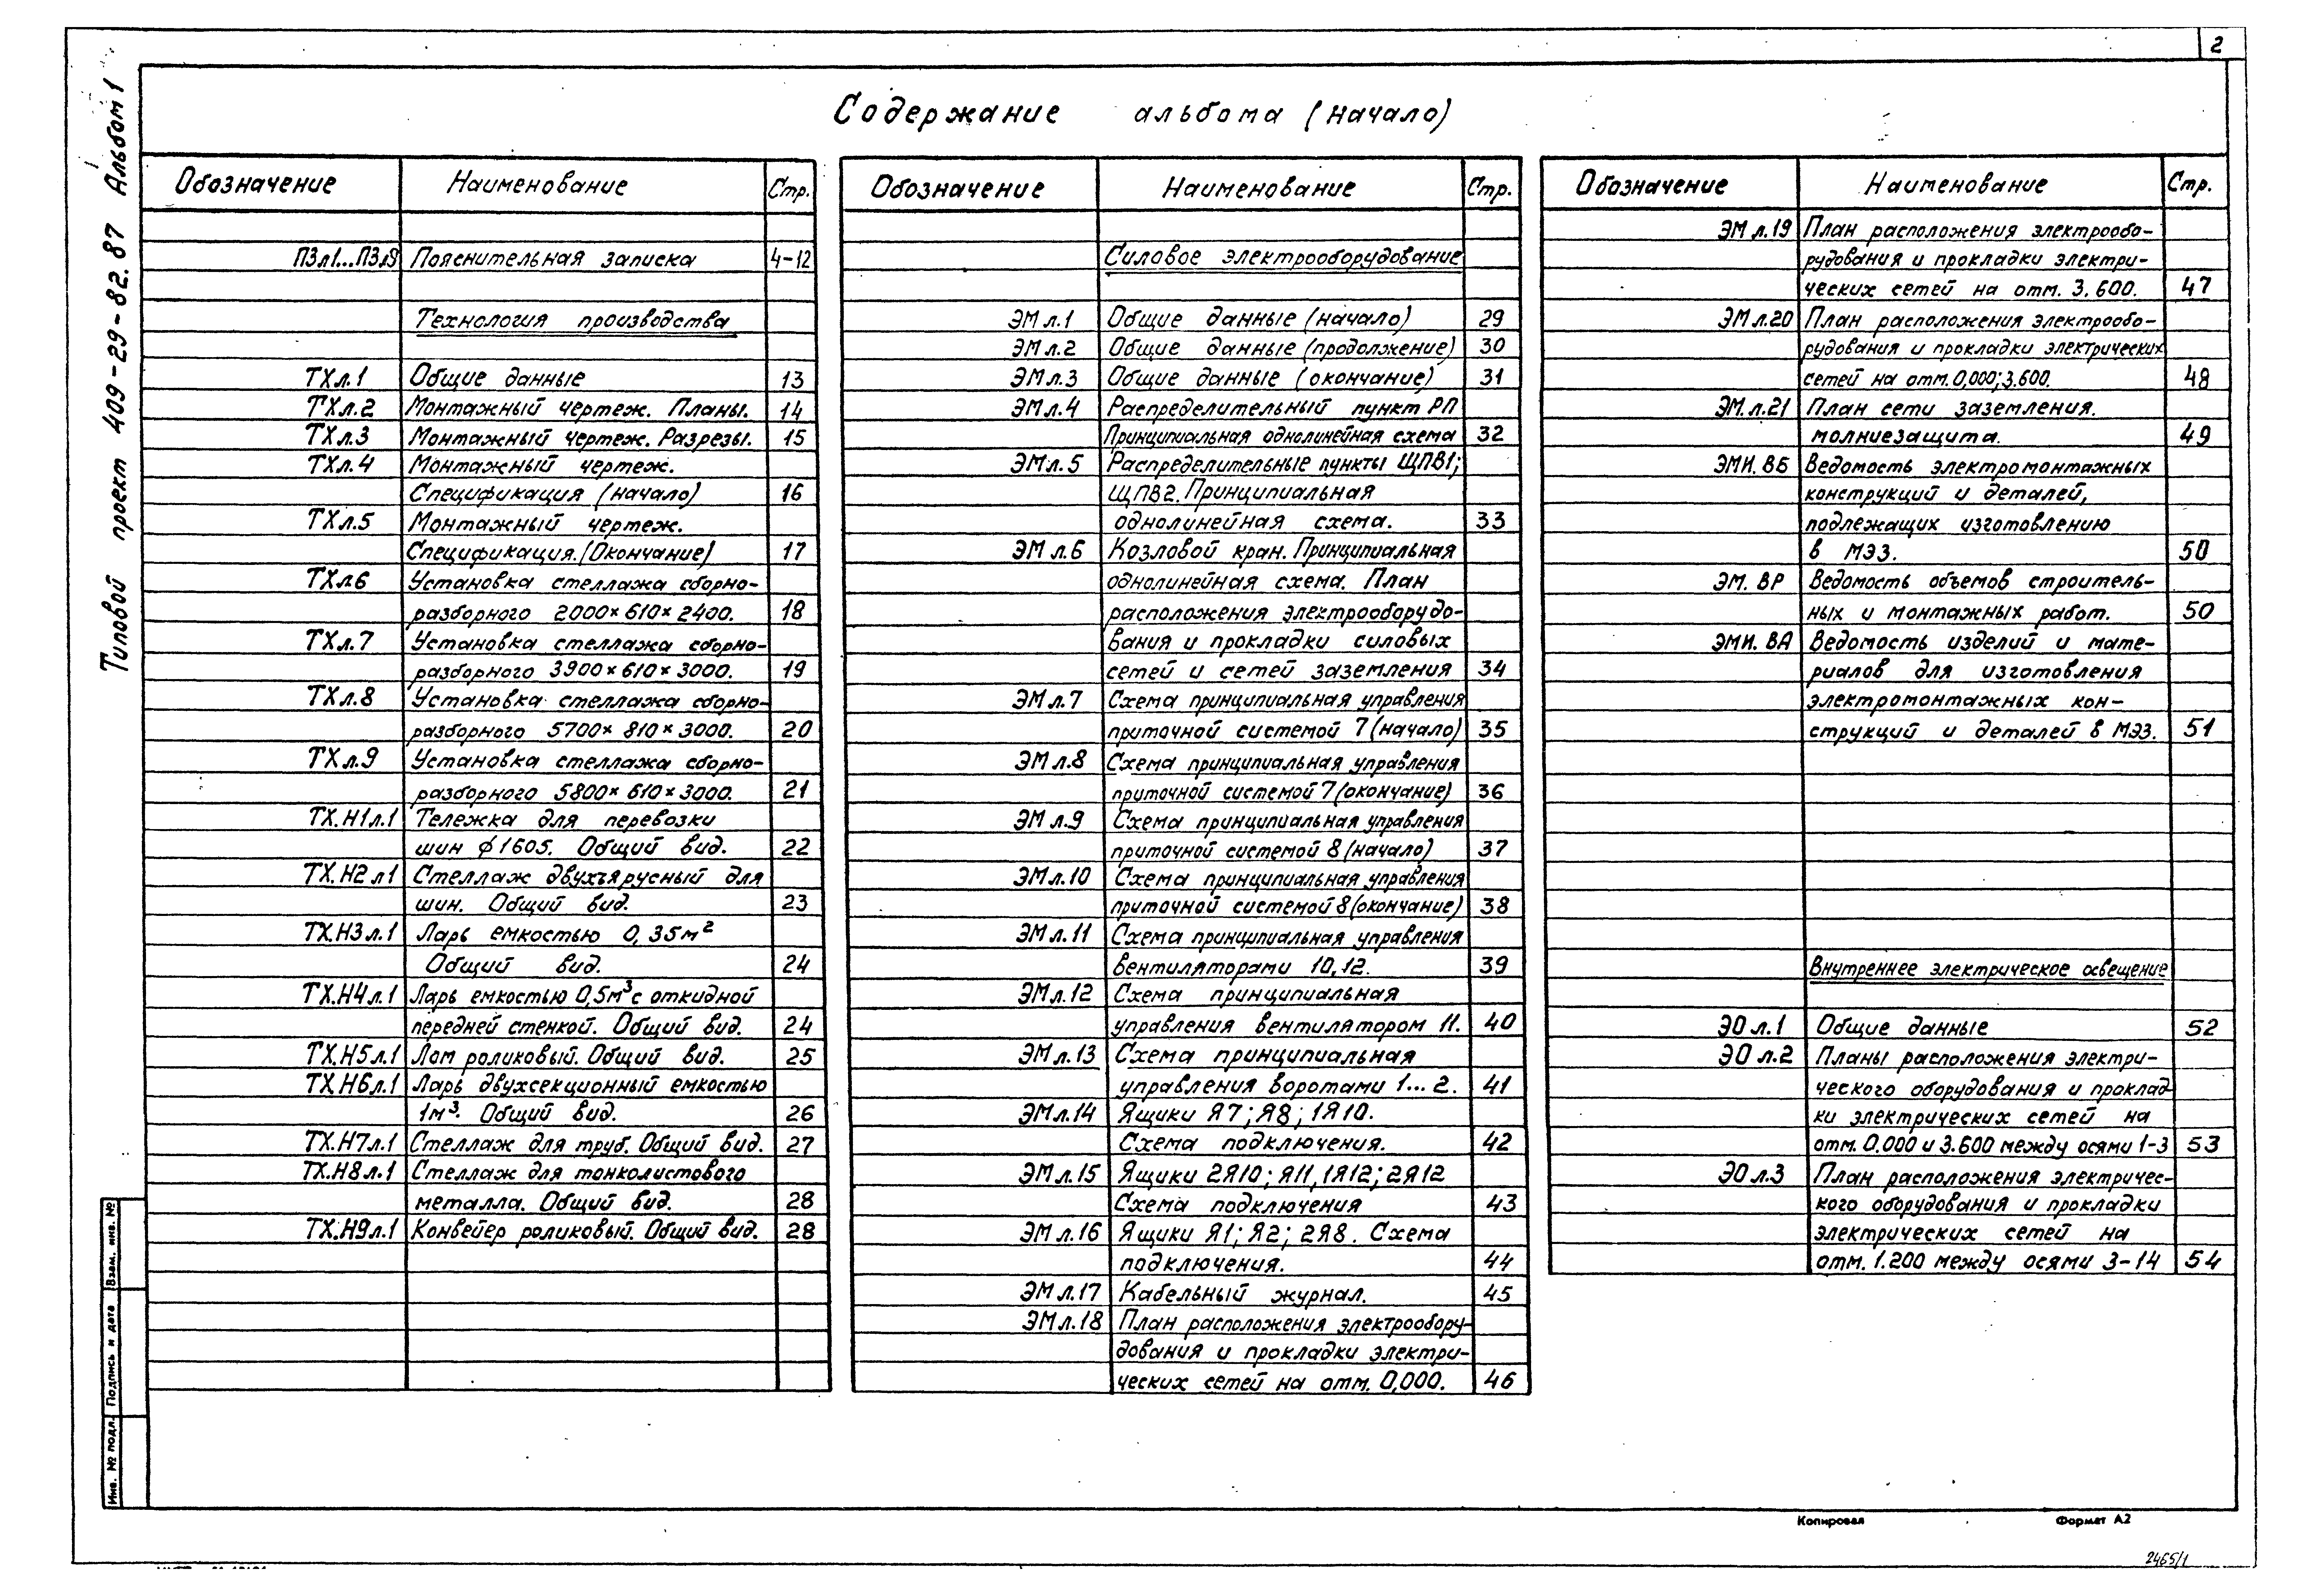 2
Содержание альбома (начало)
Типовой проект 409-29-82.87 Альбом 1
Обозначение Наименование Стр.
ПЗл1...ПЗл9 Пояснительная записка 4-12
Технология производства
ТХл.1 Общие данные 13
ТХл.2 Монтажный чертеж. Планы. 14
ТХл.3 Монтажный чертеж. Разрезы. 15
ТХл.4 Монтажный чертеж.
Спецификация (начало) 16
ТХл.5 Монтажный чертеж.
Спецификация. (Окончание) 17
ТХл6 Установка стеллажа сборно-
разборного 2000×610×2400. 18
ТХл.7 Установка стеллажа сборно-
разборного 3900×610×3000. 19
ТХл.8 Установка стеллажа сборно-
разборного 5700×810×3000. 20
ТХл.9 Установка стеллажа сборно-
разборного 5800×610×3000. 21
ТХ.Н1л.1 Тележка для перевозки
шин ф1605. Общий вид. 22
ТХ.Н2л1 Стеллаж двухъярусный для
шин. Общий вид. 23
ТХ.Н3л.1 Ларь емкостью 0,35м²
Общий вид. 24
ТХ.Н4л.1 Ларь емкостью 0,5м³ с откидной
передней стенкой. Общий вид. 24
ТХ.Н5л.1 Лом роликовый. Общий вид. 25
ТХ.Н6л.1 Ларь двухсекционный емкостью
1м³. Общий вид. 26
ТХ.Н7л.1 Стеллаж для труб. Общий вид. 27
ТХ.Н8л.1 Стеллаж для тонколистового
металла. Общий вид. 28
ТХ.Н9л.1 Конвейер роликовый. Общий вид. 28
Обозначение Наименование Стр.
Силовое электрооборудование
ЭМл.1 Общие данные (начало) 29
ЭМл.2 Общие данные (продолжение) 30
ЭМл.3 Общие данные (окончание) 31
ЭМл.4 Распределительный пункт РП
Принципиальная однолинейная схема 32
ЭМл.5 Распределительные пункты ЩПВ1;
ЩПВ2. Принципиальная
однолинейная схема. 33
ЭМл.6 Козловой кран. Принципиальная
однолинейная схема. План
расположения электрооборудо-
вания и прокладки силовых
сетей и сетей заземления 34
ЭМл.7 Схема принципиальная управления
приточной системой 7 (начало) 35
ЭМл.8 Схема принципиальная управления
приточной системой 7 (окончание) 36
ЭМл.9 Схема принципиальная управления
приточной системой 8 (начало) 37
ЭМл.10 Схема принципиальная управления
приточной системой 8 (окончание) 38
ЭМл.11 Схема принципиальная управления
вентиляторами 10,12. 39
ЭМл.12 Схема принципиальная
управления вентилятором 11. 40
ЭМл.13 Схема принципиальная
управления воротами 1...2. 41
ЭМл.14 Ящики Я7; Я8; 1Я10.
Схема подключения. 42
ЭМл.15 Ящики 2Я10; Я11, 1Я12; 2Я12
Схема подключения 43
ЭМл.16 Ящики Я1; Я2; 2Я8. Схема
подключения. 44
ЭМл.17 Кабельный журнал. 45
ЭМл.18 План расположения электрообору-
дования и прокладки электри-
ческих сетей на отм. 0,000. 46
Обозначение Наименование Стр.
ЭМл.19 План расположения электрообо-
рудования и прокладки электри-
ческих сетей на отм. 3.600. 47
ЭМл.20 План расположения электрообо-
рудования и прокладки электрических
сетей на отм. 0,000; 3.600. 48
ЭМ.л.21 План сети заземления.
молниезащита. 49
ЭМИ. ВБ Ведомость электромонтажных
конструкций и деталей,
подлежащих изготовлению
в МЭЗ. 50
ЭМ. ВР Ведомость объемов строитель-
ных и монтажных работ. 50
ЭМИ. ВА Ведомость изделий и мате-
риалов для изготовления
электромонтажных кон-
струкций и деталей в МЭЗ. 51
Внутреннее электрическое освещение
ЭОл.1 Общие данные 52
ЭОл.2 Планы расположения электри-
ческого оборудования и проклад-
ки электрических сетей на
отм. 0.000 и 3.600 между осями 1-3 53
ЭОл.3 План расположения электричес-
кого оборудования и прокладки
электрических сетей на
отм. 1.200 между осями 3-14 54
Инв. № подл. Подпись и дата Взам. инв. №
Копировал Формат А2
2465/1